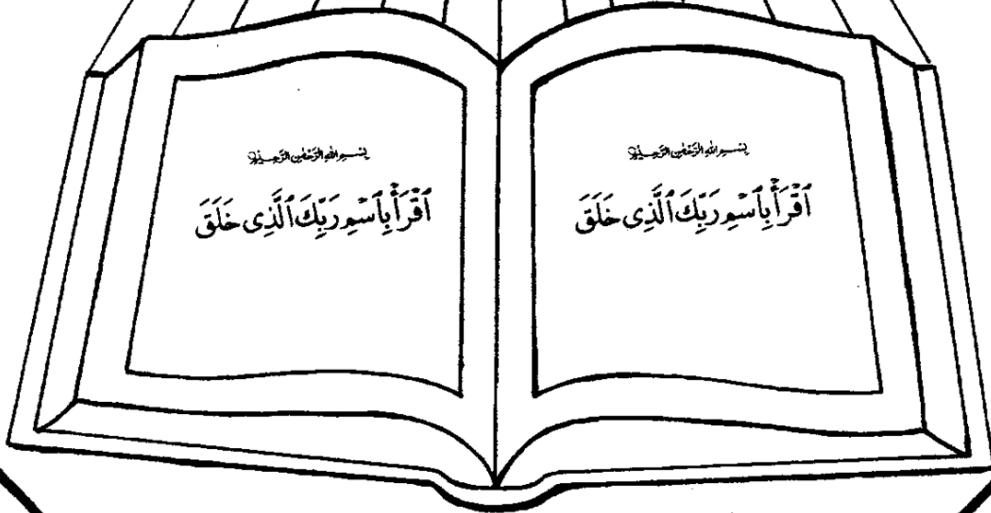 بسم الله الرحمن الرحيم
ٱقْرَأْ بِٱسْمِ رَبِّكَ ٱلَّذِى خَلَقَ
بسم الله الرحمن الرحيم
ٱقْرَأْ بِٱسْمِ رَبِّكَ ٱلَّذِى خَلَقَ